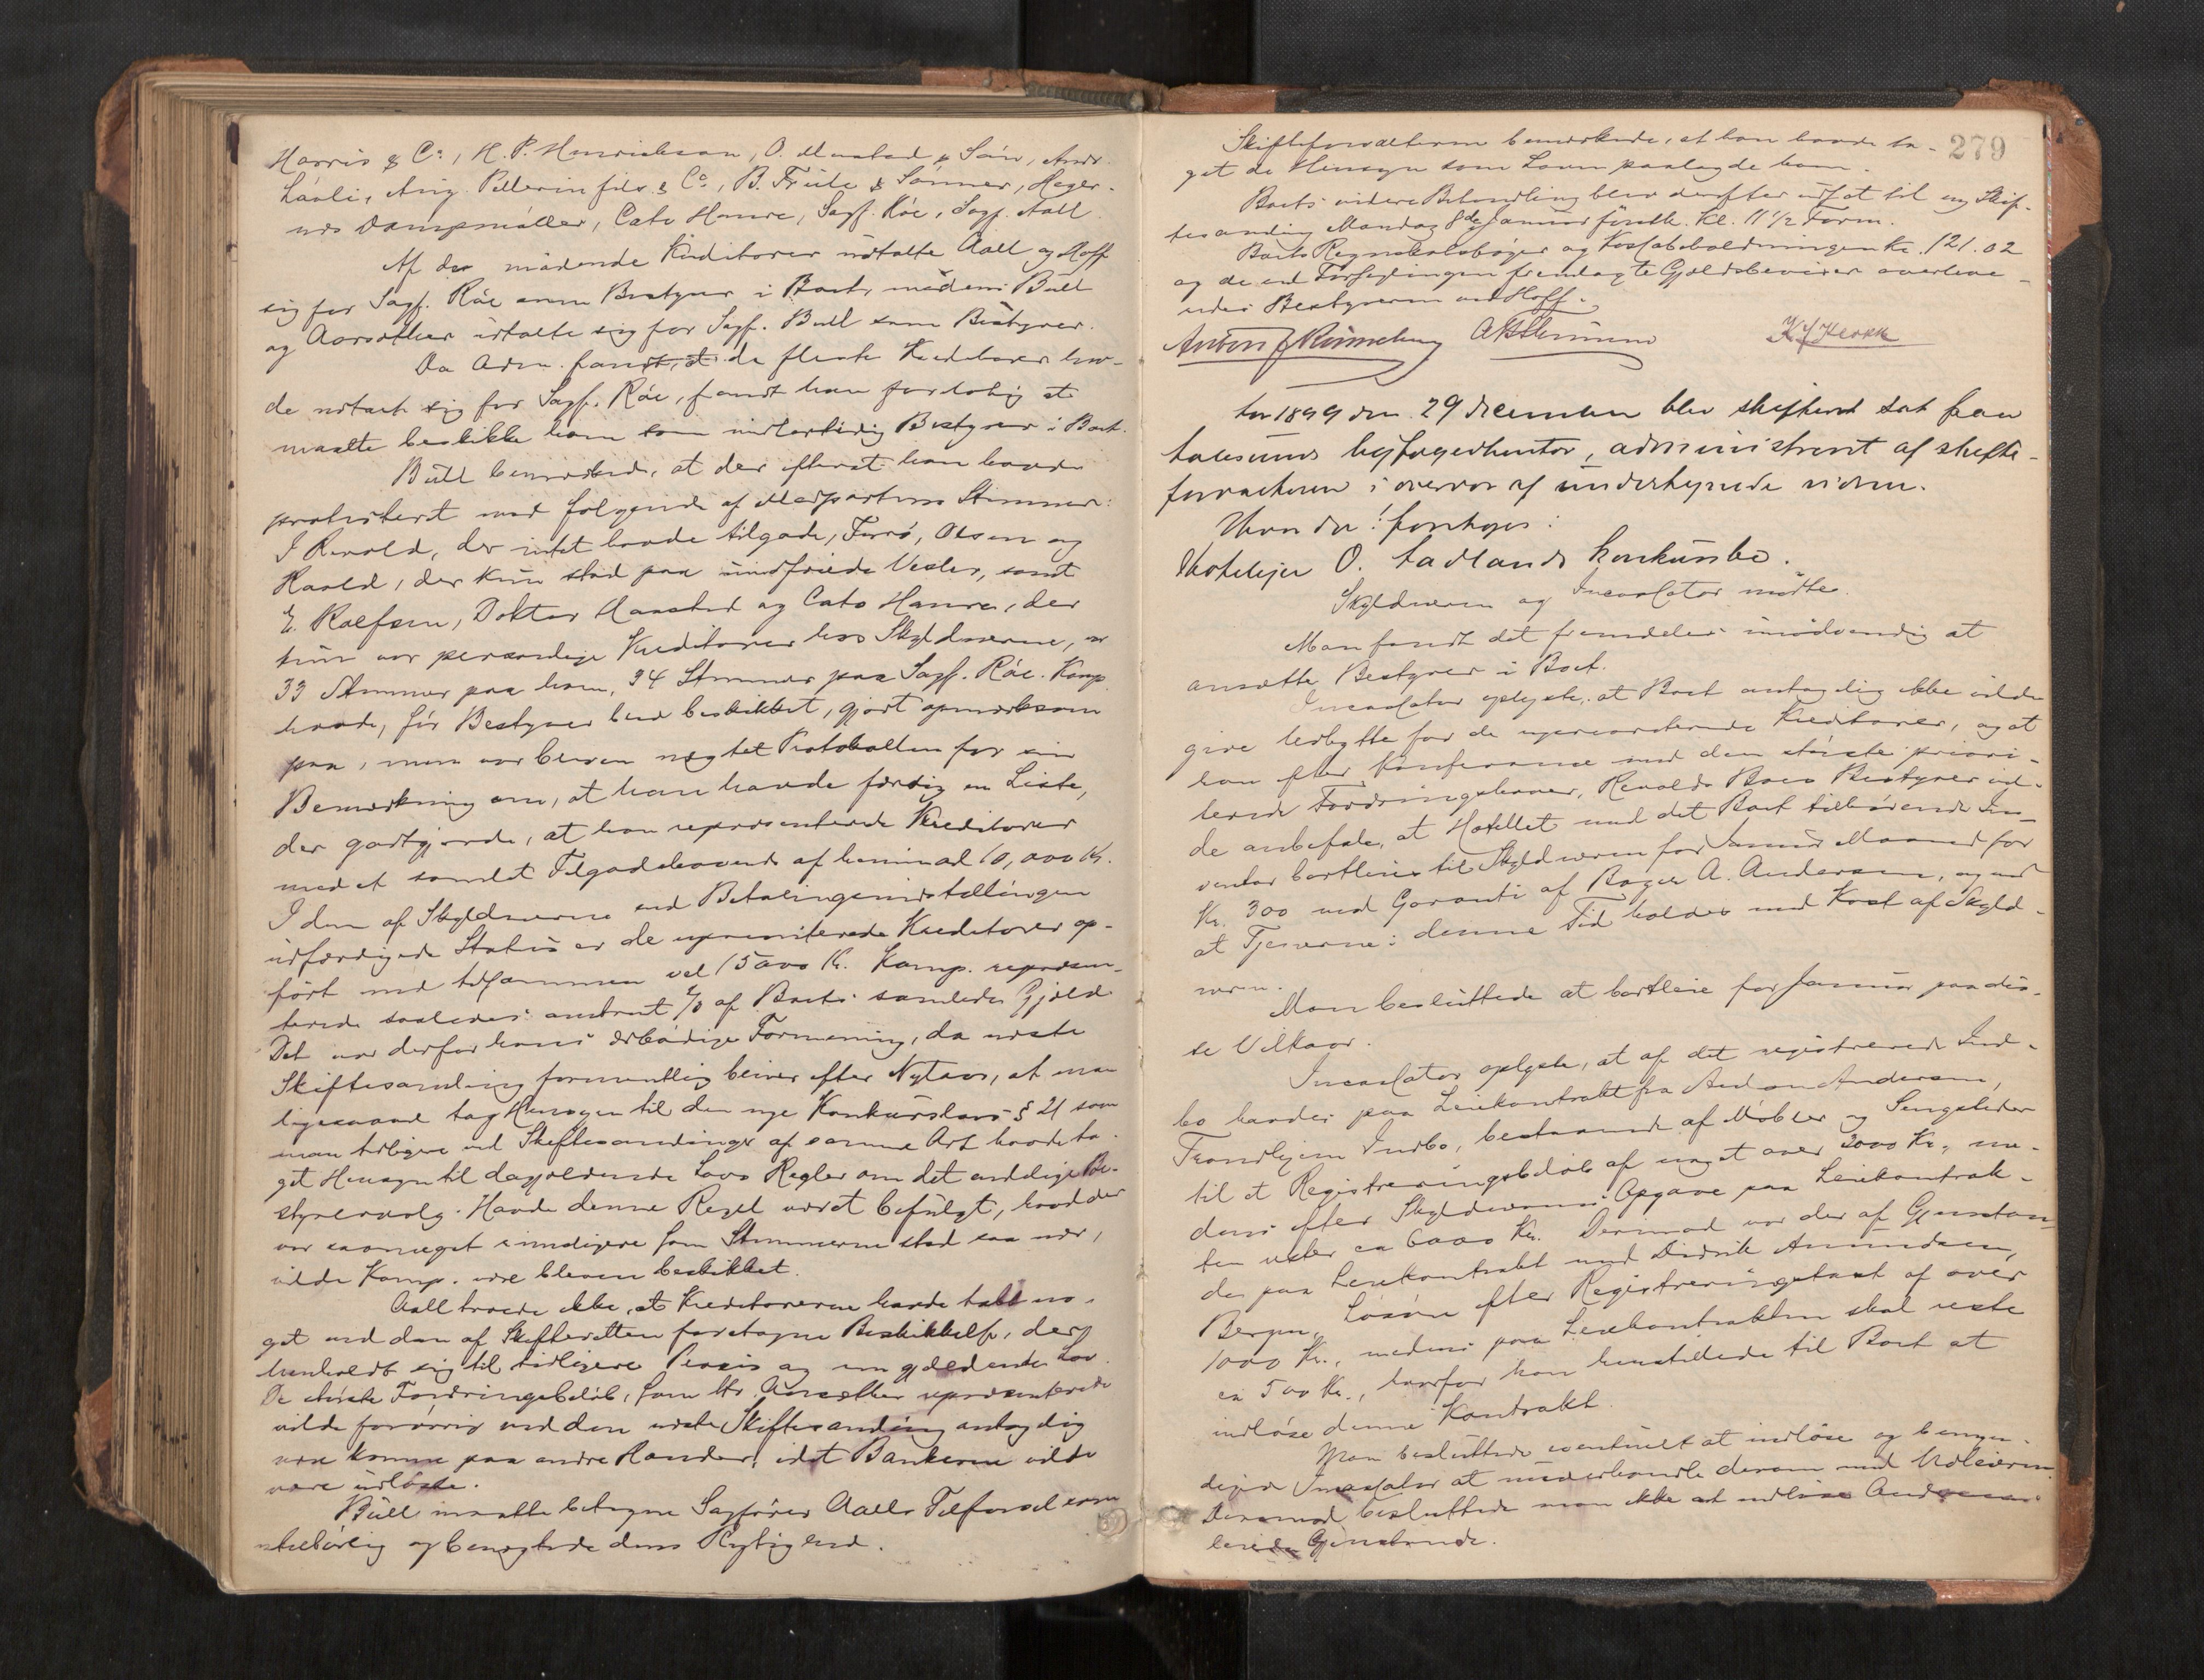 Harris & Co, H. P. Henrichsen, O. Mustad & Søn, Andr.
Løvli, Aug. Pellerin fils & Co, B. Friele & Sønner, Heger-
nes Dampmøller, Cato Hansre, Sagf. Róe, Sagf. Aall
Af de mødende Kreditorer udtalte Aall og Hoff
sig for Sagf. Róe som Bestyrer i Boet, medens Bull
og Aarsæther udtalte sig for Sagf. Bull som Bestyrer.
Da Adm. fandt, at de fleste Kreditorer hav-
de udtalt sig for Sagf. Róe, fandt han forløbig at
maatte beskikke ham som midlertidig Bestyrer i Boet.
Bull bemærkede, at der efterat han havde
protesteret mod følgende af Modpartens Stemmer:
J Revold, der intet havde tilgode, Furø, Olsen og
Havold, der kun stod paa uindfriede Vexler, samt
E. Rolfsen, Doktor Haasted og Cato Hansre, der
kun var personlige Kreditorer hos Skyldnerne, var
33 Stemmer paa ham, 34 Stemmer paa Sagf. Róe. Komp.
havde, før Bestyrer blev beskikket, gjort opmærksom
paa, men var bleven nægtet Protokollen for sin
Bemærkning om, at han havde færdig en Liste,
der godtgjorde, at han repræsenterede Kreditorer
med et samlet Tilgodehavende af henimod 10,000 Kr.
I den af Skyldnerne ved Betalingsindstillingen
udfærdigede Status er de uprioriterede Kreditorer op-
ført med tilsammen vel 15000 Kr. Komp. repræsen-
terede saaledes omtrent 2/3 af Boets samlede Gjæld
Det var derfor hans ærbødige Formening, da næste
Skiftesamling formentlig bliver efter Nytaar, at man
ligesaavel tog Hensyn til den nye Konkurslovs § 21 som
man tidligere ved Skiftesamlinger af samme Art havde ta-
get Hensyn til dagjældende Lovs Regler om det endelige Be-
styrervalg. Havde denne Regel været befulgt, hvad der
var saameget rimeligere som Stemmerne stod saa nær,
vilde Komp. være bleven beskikket.
Aall troede ikke, at Kreditorerne havde tabt no-
get ved den af Skifteretten foretagne Beskikkelse, der
henholdt sig til tidligere Praxis og nu gjældende Lov.
De største Fordringsbeløb, som Hr. Aarsæther repræsenterede
vilde forøvrig ved den næste Skiftesamling antagelig
være komne paa andre Hænder, idet Bankerne vilde
være udløste.
Bull maatte betegne Sagfører Aalls Tilførsel som
utilbørlig og benægtede dens Rigtighed.
279
Skifteforvalteren bemærkede, at han havde ta-
get de Hensyn som Loven paalagde ham.
Boets videre Behandling blev derefter udsat til ny Skif-
tesamling Mandag 8de Januar førstk. Kl. 11 1/2 Form.
Boets Regnskabsbøger og Kassabeholdningen Kr. 121.02
og de ved Forseglingen fremlagte Gjældsbeviser overleve-
redes Bestyreren ved Hoff.
Anton J Rønneberg
Aar 1899 den 29 december blev skifteret sat paa
Aalesunds byfogedkontor, administreret af skifte-
forvalteren i overvær af underskrevne vidner.
Hvor da: foretoges:
Hotelejer O. Aadlands konkursbo.
Skyldneren og Incassator mødte.
Man fandt det fremdeles unødvendig at
ansætte Bestyrer i Boet.
Incassator oplyste, at Boet antagelig ikke vilde
give Udbytte for de uprioriterede Kreditorer, og at
han efter Konferance med den største priori-
terede Fordringshaver, Revolds Boes Bestyrer vil-
de anbefale, at Hotellet med det Boet tilhørende In-
ventar bortleies til Skyldneren for Januar Maaned for
Kr. 300 med Garanti af Bager A. Andersen, og med
at Tjenerne i denne Tid holdes med Kost af Skyld-
neren.
Man besluttede at bortleie for Januar paa dis-
se Vilkaar.
Incassator oplyste, at af det registrerede Ind-
bo havdes paa Leiekontrakt fra Anton Andersen,
Trondhjem Indbo, bestaaende af Møbler og Sengeklæder
til et Registreringsbeløb af noget over 2000 Kr., me-
dens efter Skyldnerens Opgave paa Leiekontrak-
ten rester ca 6000 Kr. Derimod var der af Gjenstan-
de paa Leiekontrakt med Didrik Amundsen,
Bergen, Løsøre efter Registreringstaxt af over
1000 Kr., medens paa Leiekontrakten skal reste
ca 500 Kr., hvorfor han henstillede til Boet at
indløse denne Kontrakt.
Man besluttede eventuelt at indløse og bemyn-
digede Incassator at underhandle derom med Udleieren.
Derimod besluttede man ikke at indløse Andersens
leiede Gjenstande.